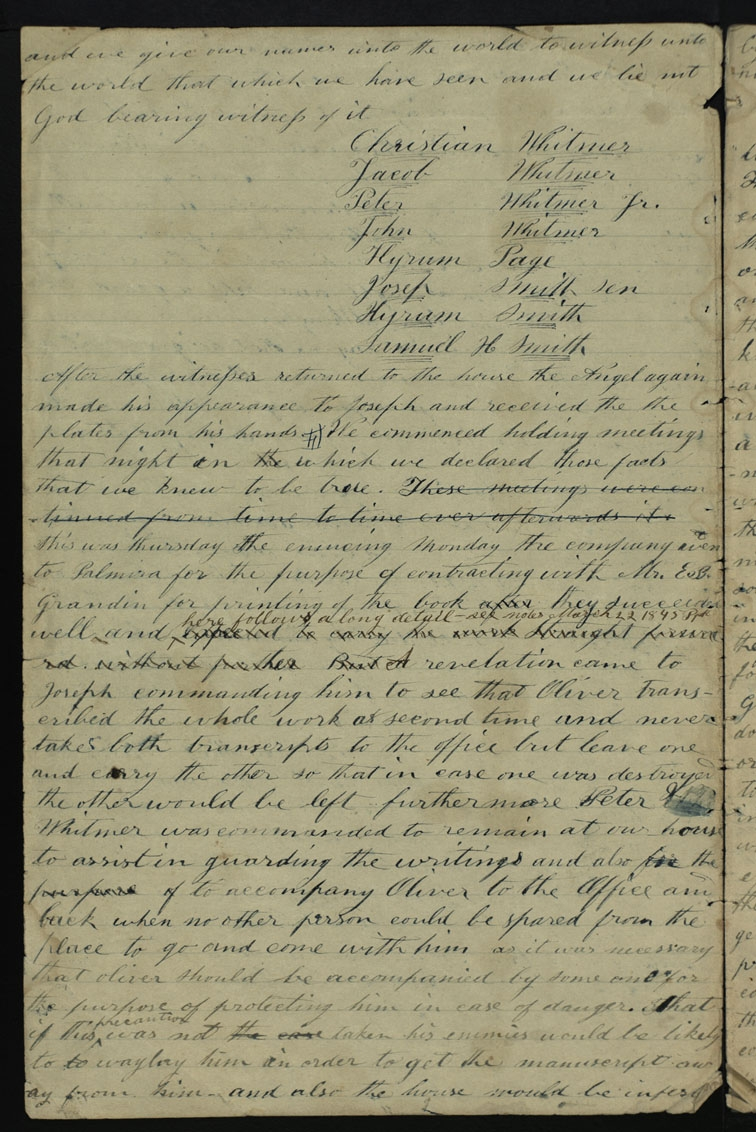 and we give our names unto the world to witness unto
the world that which we have seen and we lie not
God bearing witness of it
Christian Whitmer
Jacob Whitmer
Peter Whitmer Jr.
John Whitmer
Hyrum Page
Josep Smith sen
Hyrum Smith
Samuel H Smith
After the witnesses returned to the house the Angel again
made his appearance to Joseph and received the the
plates from his hands We commenced holding meetings
that night in the which we declared those facts
that we knew to be true. These meetings were con
tinued from time to time ever afterwards
this was thursday the enueing Monday the company
to Palmira for the purpose of contracting with Mr. E.B.
Grandin for printing of the book after they succeed
here follows a long detail - see note March 22 1845
well and to carry the work straight forwa
rd. without further But A revelation came to
Joseph commanding him to see that Oliver trans-
cribed the whole work a second time and never
take both transcripts to the office but leave one
and carry the other so that in case one was destroyed
the other would be left furthermore Peter
Whitmer was commanded to remain at our house
to assist in guarding the writings and also the
purpose of to accompany Oliver to the Office and
back when no other person could be spared from the
place to go and come with him as it was necessary
that oliver should be accompanied by some one for
the purpose of protecting him in case of danger. that
precaution
if this was not the case taken his enimies would be likely
to to waylay him in order to get the manuscript aw
ay from him and also the house would be infes